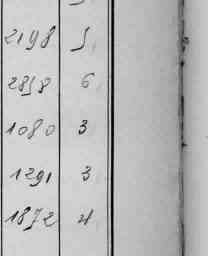 2198 5
2858 6
1080 3
1291 3
1872 4